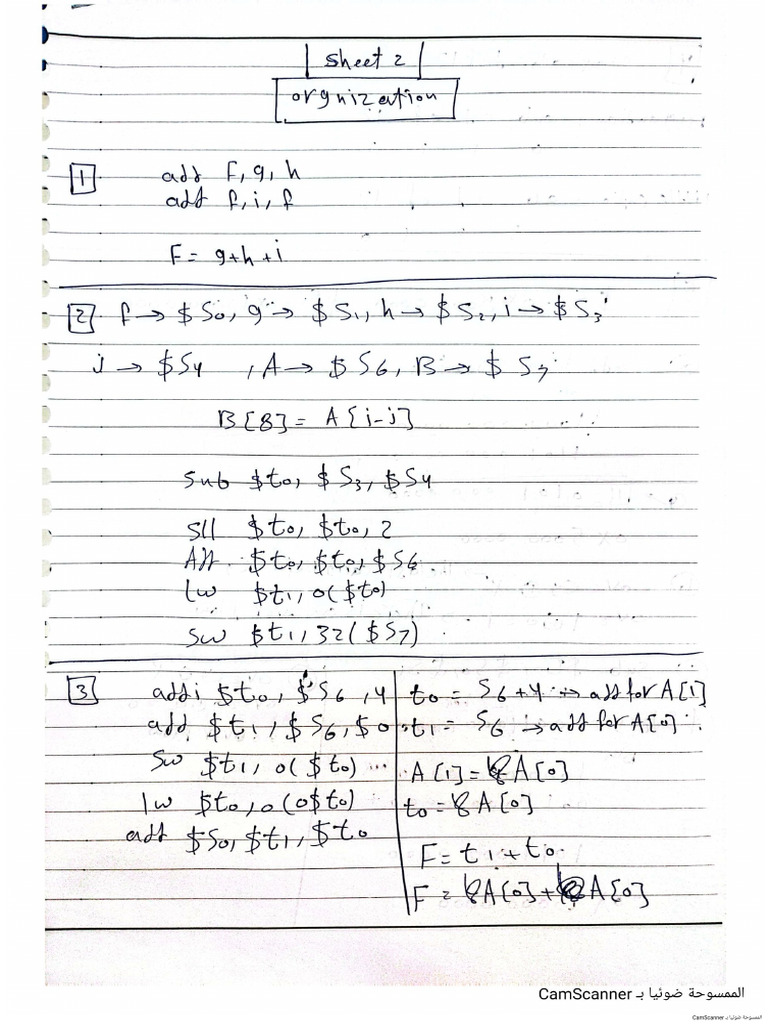 sheet 2
orgnization
1 add F, g, h
add f, i, f
F = g+h+i
2 f → $S0, g → $S1, h → $S2, i → $S3
j → $S4 , A → $S6, B → $S7
B[8] = A[i-j]
sub $t0, $S3, $S4
sll $t0, $t0, 2
Add $t0, $t0, $S6
lw $t1, 0($t0)
sw $t1, 32($S7)
3 addi $t0, $S6, 4
add $t1, $S6, $0
sw $t1, 0($t0)
lw $t0, 0(0$t0)
add $S0, $t1, $t0
t0 = S6+4 → add for A[1]
t1 = S6 → add for A[0]
A[1] = &A[0]
t0 = &A[0]
F = t1 + t0
F = &A[0] + &A[0]
الممسوحة ضوئيا بـ CamScanner
الممسوحة ضوئيا بـ CamScanner